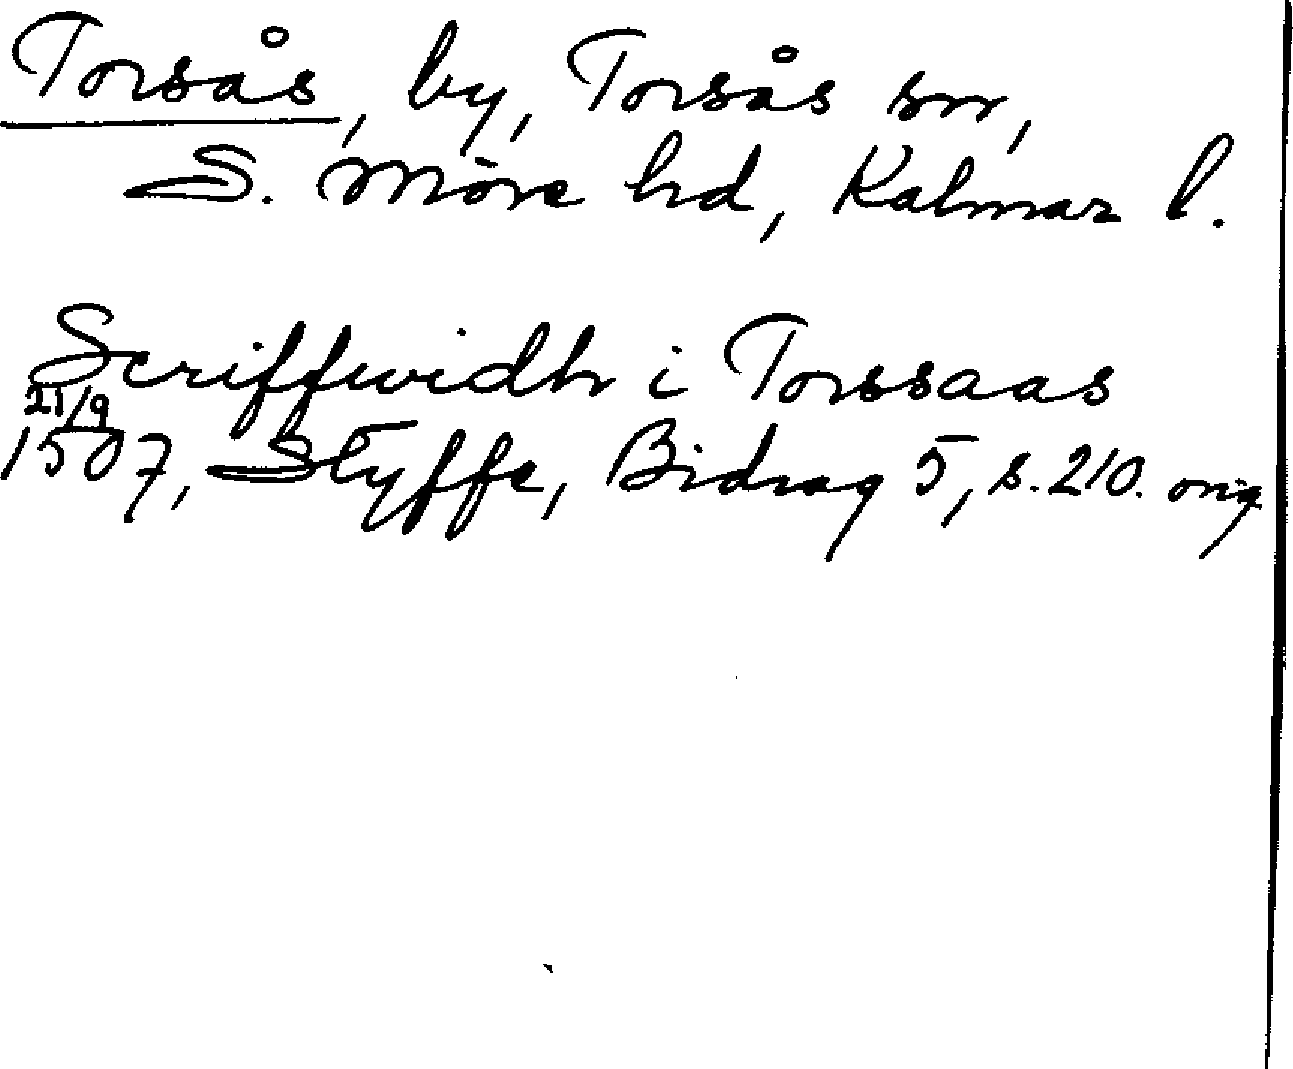 Torsås, by, Torsås sn,
S. Möre hd, Kalmar l.
Scriffwidh i Torssaas
21/9
1507, Styffe, Bidrag 5, s. 210. orig